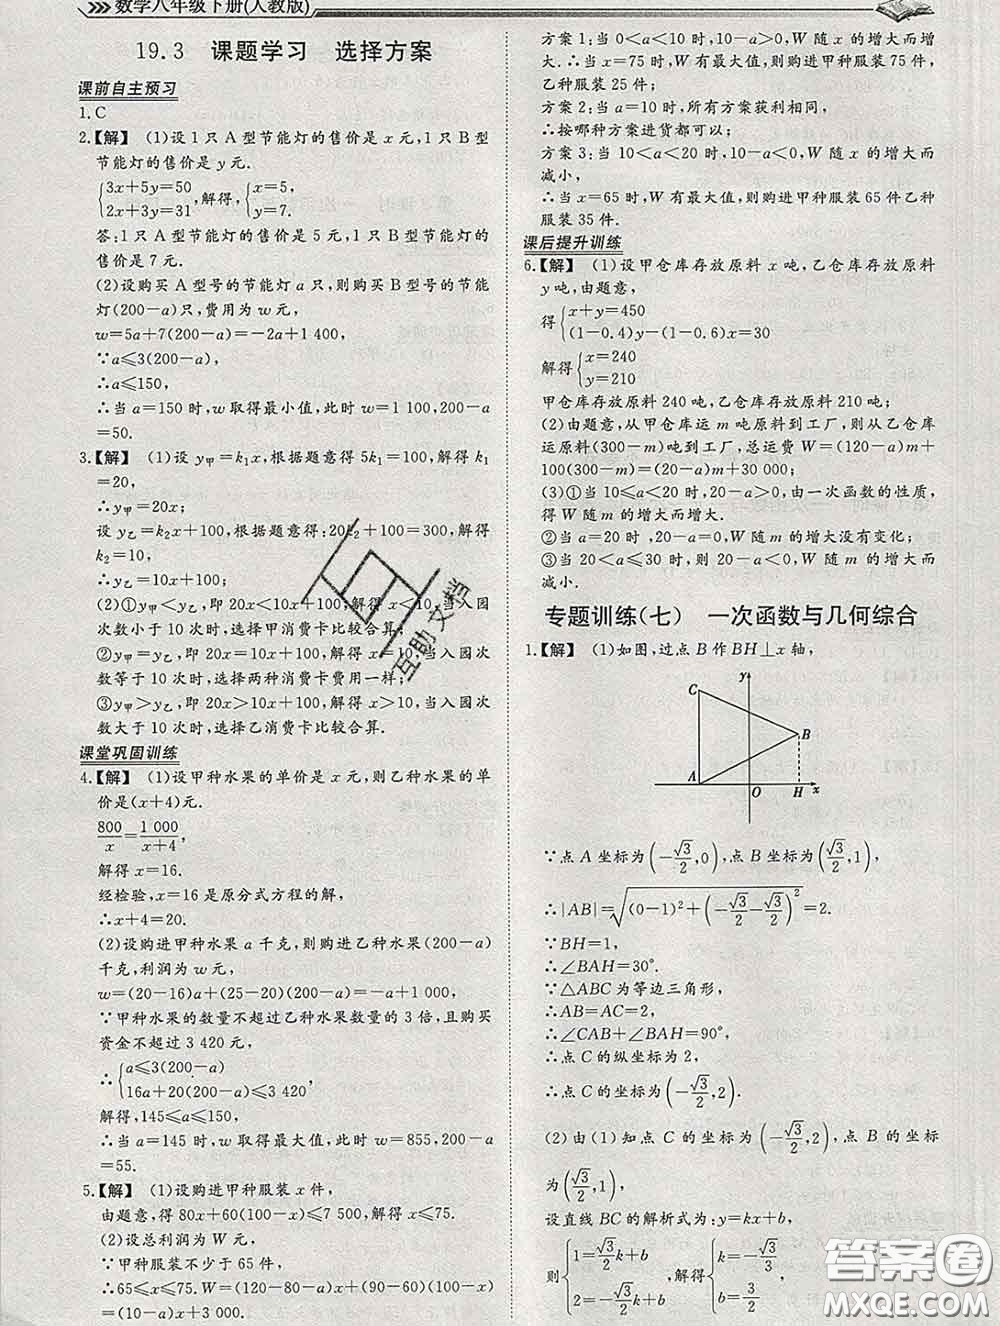 数学八年级下册(人教版)
19.3 课题学习 选择方案
课前自主预习
1.C
2.【解】 (1)设 1 只 A 型节能灯的售价是 x 元,1 只 B 型
节能灯的售价是 y 元.
{3x+5y=50
2x+3y=31 ,解得, {x=5,
y=7.
答:1 只 A 型节能灯的售价是 5 元,1 只 B 型节能灯的
售价是 7 元.
(2)设购买 A 型号的节能灯 a 只,则购买 B 型号的节能
灯(200-a)只,费用为 w 元,
w=5a+7(200-a)=-2a+1 400,
∵a≤3(200-a),
∴a≤150,
∴当 a=150 时,w 取得最小值,此时 w=1 100,200-a
=50.
3.【解】 (1)设 y甲=k₁x,根据题意得 5k₁=100,解得 k₁
=20,
∴y甲=20x;
设 y乙=k₂x+100,根据题意得:20k₂+100=300,解得
k₂=10,
∴y乙=10x+100;
(2)①y甲<y乙,即 20x<10x+100,解得 x<10,当入园
次数小于 10 次时,选择甲消费卡比较合算;
②y甲=y乙,即 20x=10x+100,解得 x=10,当入园次
数等于 10 次时,选择两种消费卡费用一样;
③y甲>y乙,即 20x>10x+100,解得 x>10,当入园次
数大于 10 次时,选择乙消费卡比较合算.
课堂巩固训练
4.【解】 (1)设甲种水果的单价是 x 元,则乙种水果的单
价是(x+4)元.
800/x=1 000/(x+4),
解得 x=16.
经检验,x=16 是原分式方程的解,
∴x+4=20.
(2)设购进甲种水果 a 千克,则购进乙种水果(200-a)
千克,利润为 w 元,
w=(20-16)a+(25-20)(200-a)=-a+1 000,
∵甲种水果的数量不超过乙种水果数量的 3 倍,且购买
资金不超过 3 420 元,
∴{a≤3(200-a)
16a+20(200-a)≤3 420,
解得,145≤a≤150,
∴当 a=145 时,w 取得最大值,此时 w=855,200-a
=55.
5.【解】 (1)设购进甲种服装 x 件,
由题意,得 80x+60(100-x)≤7 500,解得 x≤75.
(2)设总利润为 W 元,
甲种服装不少于 65 件,
∴65≤x≤75. W=(120-80-a)x+(90-60)(100-x)
=(10-a)x+3 000.
方案 1;当 0<a<10 时,10-a>0,W 随 x 的增大而增大,
∴当 x=75 时,W 有最大值,则购进甲种服装 75 件,
乙种服装 25 件;
方案 2;当 a=10 时,所有方案获利相同,
∴按哪种方案进货都可以;
方案 3;当 10<a<20 时,10-a<0,W 随 x 的增大而
减小,
∴当 x=65 时,W 有最大值,则购进甲种服装 65 件乙种
服装 35 件.
课后提升训练
6.【解】 (1)设甲仓库存放原料 x 吨,乙仓库存放原料
y吨,由题意,
得{x+y=450
(1-0.4)y-(1-0.6)x=30
解得{x=240
y=210
甲仓库存放原料 240 吨,乙仓库存放原料 210 吨;
(2)由题意,从甲仓库运 m 吨原料到工厂,则从乙仓库
运原料(300-m)吨到工厂,总运费 W=(120-a)m+
100(300-m)=(20-a)m+30 000;
(3)①当 10≤a<20 时,20-a>0,由一次函数的性质,
得 W 随 m 的增大而增大.
②当 a=20 时 ,20-a=0,W 随 m 的增大没有变化;
③当 20<a≤30 时,则 20-a<0,W 随 m 的增大而
减小.
专题训练(七) 一次函数与几何综合
1.【解】 (1)如图,过点 B 作 BH⊥x 轴,
y
C
B
A
O
H
x
∵点 A 坐标为(-√3/2,0),点 B 坐标为(√3/2,1),
∴|AB|=√((0-1)²+(-√3/2-√3/2)²)=2.
∵BH=1,
∴∠BAH=30°.
∵△ABC 为等边三角形,
∴AB=AC=2,
∴∠CAB+∠BAH=90°,
∴点 C 的纵坐标为 2,
∴点 C 的坐标为(-√3/2,2).
(2)由(1)知点 C 的坐标为(-√3/2,2),点 B 的坐标
为(√3/2,1),
设直线 BC 的解析式为:y=kx+b,
则{1=√3/2k+b
2=-√3/2k+b ,解得{k=-√3/3
b=3/2
互助文档
答案圈
MXQE.COM